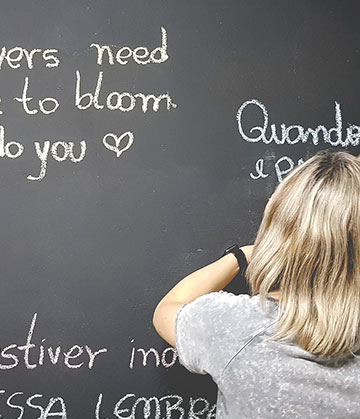 yers need
to bloom
do you ♡
Quando
e
stiver
ESSA LEMBRA